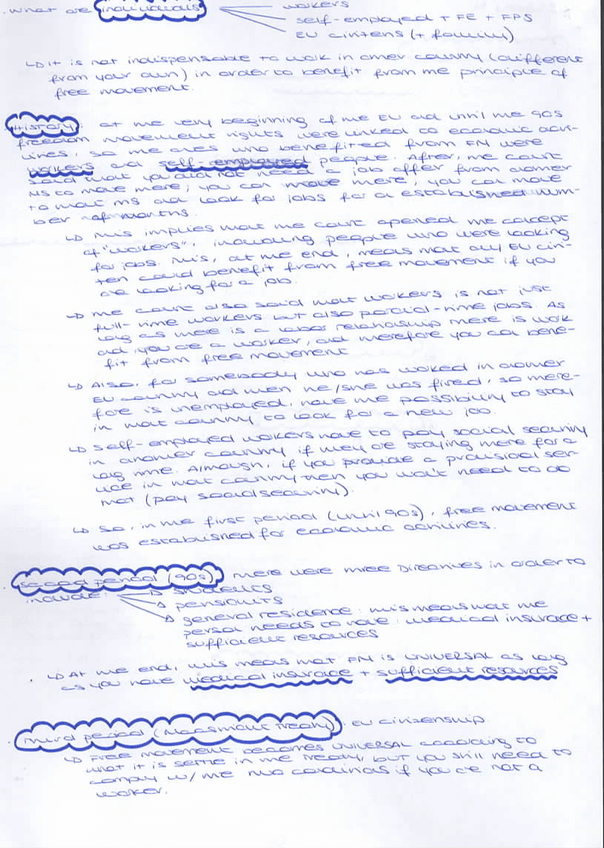 · What are individuals
workers
self-employed + FE + FPS
EU citizens (+ family)
↳ It is not indispensable to work in other country (different
from your own) in order to benefit from the principle of
free movement.
· History: at the very beginning of the EU and until the 90s
freedom movement rights were linked to economic acti-
vities, so the ones who benefited from FM were
workers and self-employed people. After, the court
said that you did not need a job offer from another
MS to move there, you can move there, you can move
to that MS and look for jobs for a established num-
ber of months.
↳ This implies that the court opened the concept
of "workers", including people who were looking
for jobs. This, at the end, means that any EU citi-
zen could benefit from free movement if you
are looking for a job.
↳ The court also said that workers is not just
full-time workers but also partial-time jobs. As
long as there is a labor relationship there is work
and you're a worker, and therefore you can bene-
fit from free movement
↳ Also, for somebody who has worked in another
EU country and then he/she was fired, so there-
fore is unemployed, have the possibility to stay
in that country to look for a new job.
↳ Self-employed workers have to pay social security
in another country if they are staying there for a
long time. Although, if you provide a provisional ser-
vice in that country then you won't need to do
that (pay social security).
↳ So, in the first period (until 90s), free movement
was established for economic activities.
· Second period (90s) There were three Directives in order to
include: students
pensionits
general residence: this means that the
person needs to have: medical insurance +
sufficient resources
↳ At the end, this means that FM is UNIVERSAL as long
as you have medical insurance + sufficient resources
· Third period (Maastricht Treaty): EU citizenship
↳ Free movement becomes UNIVERSAL according to
what it is settle in the Treaty, but you still need to
comply w/ the two conditions if you're not a
worker.